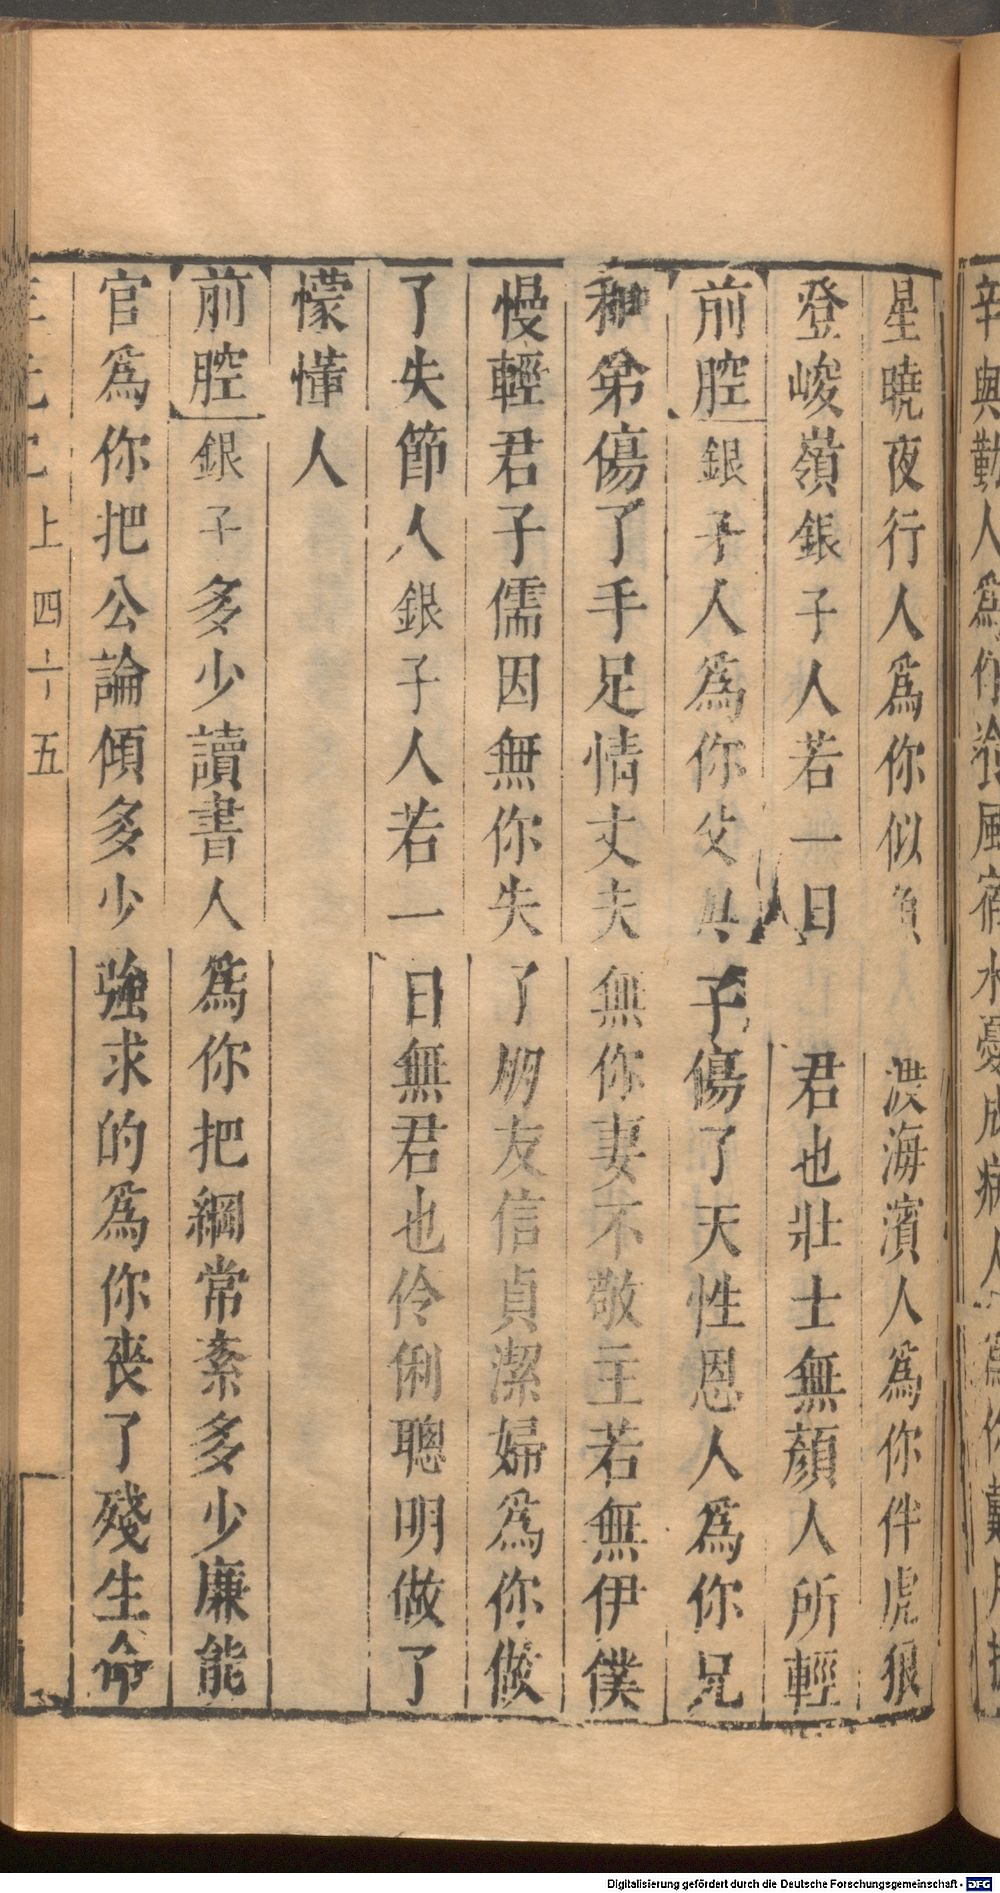 星曉夜行人為你似負渡海濱人為你伴虎狼
登峻嶺銀子人若一日君也壯士無顏人所輕
前腔銀子人為你父與子傷了天性恩人為你兄
和弟傷了手足情丈夫無你妻不敬主若無伊僕
慢輕君子儒因無你失了朋友信貞潔婦為你做
了失節人銀子人若一日無君也伶俐聰明做了
懞懂人
前腔銀子多少讀書人為你把綱常紊多少廉能
官為你把公論傾多少強求的為你喪了殘生命
上 四十五
Digitalisierung gefördert durch die Deutsche Forschungsgemeinschaft - DFG